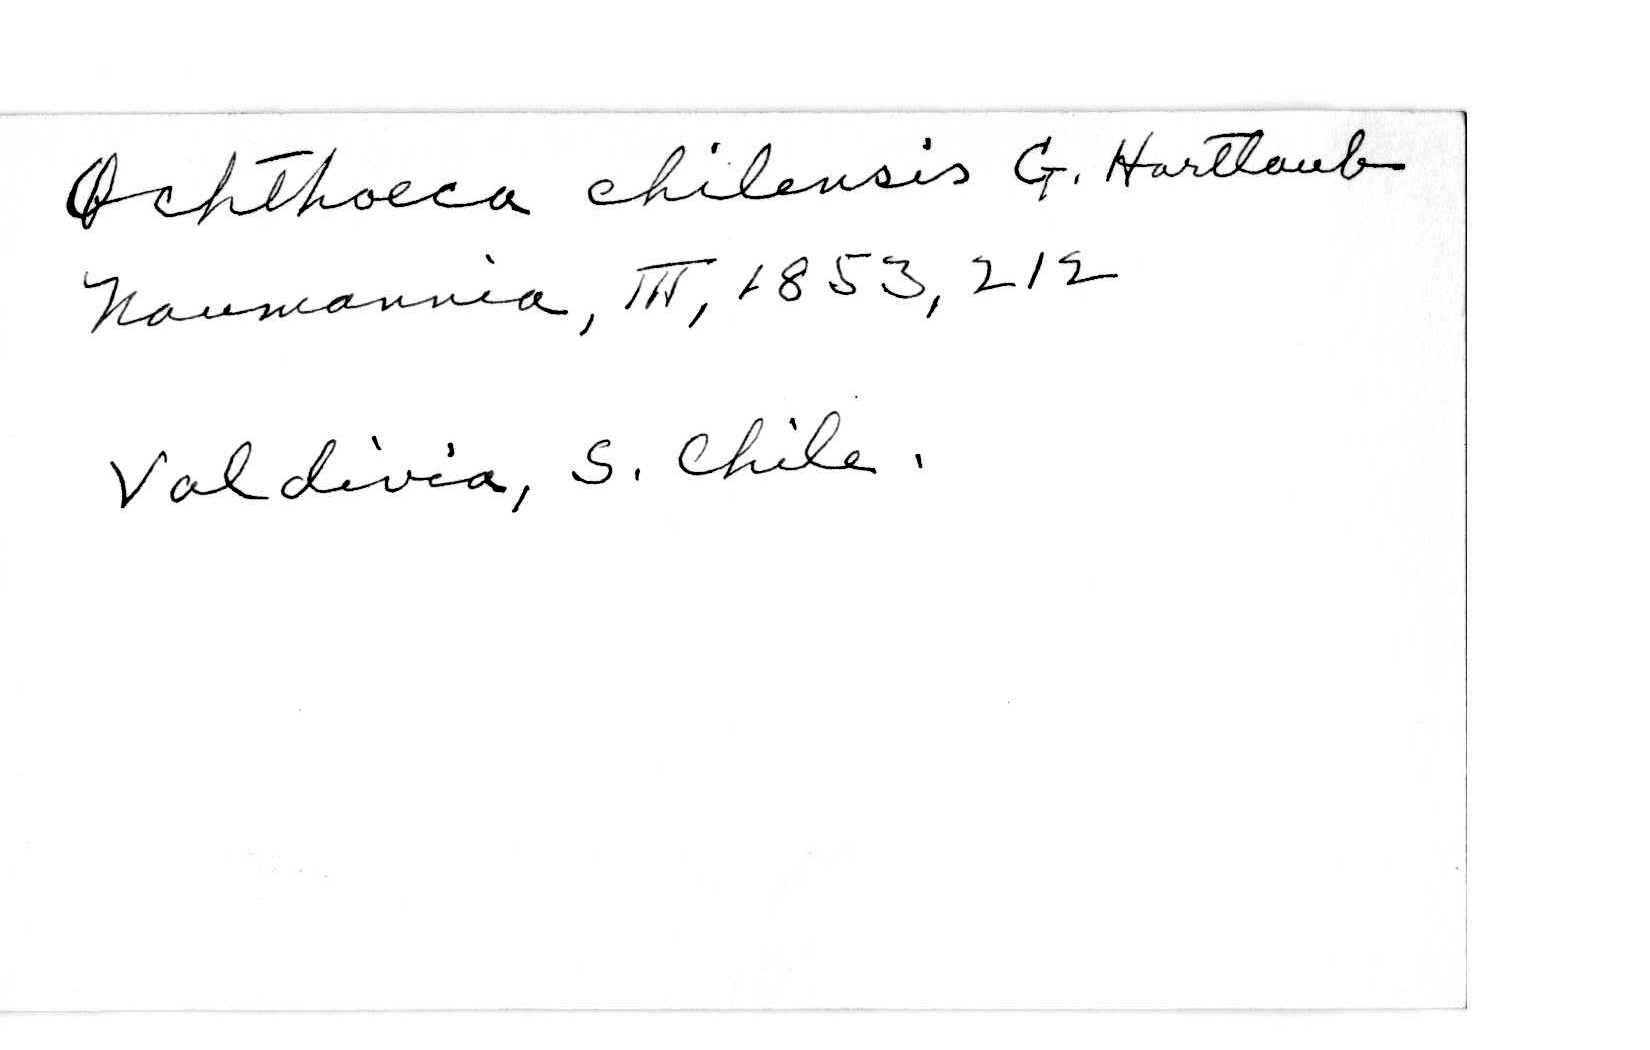 Ochthoeca chilensis G. Hartlaub
Naumannia, III, 1853, 212
Valdivia, S. Chile.